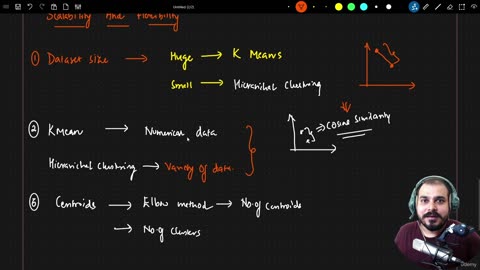 Scalability And Flexibility
① Dataset size → Huge → K Means
Small → Hierarchial Clustering
② K Mean → Numerical data
Hierarchial Clustering → Variety of data.
⇒ Cosine Similarity
③ Centroids → Elbow method → No. of Centroids
→ No. of clusters
Udemy